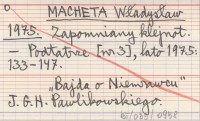 MACHETA Władysław
1975. Zapomniany klejnot.
– Poetatrze [nr 3], lato 1975:
133–147.
„Bajda o Niemrawcu"
J.G.H. Pawlikowskiego.